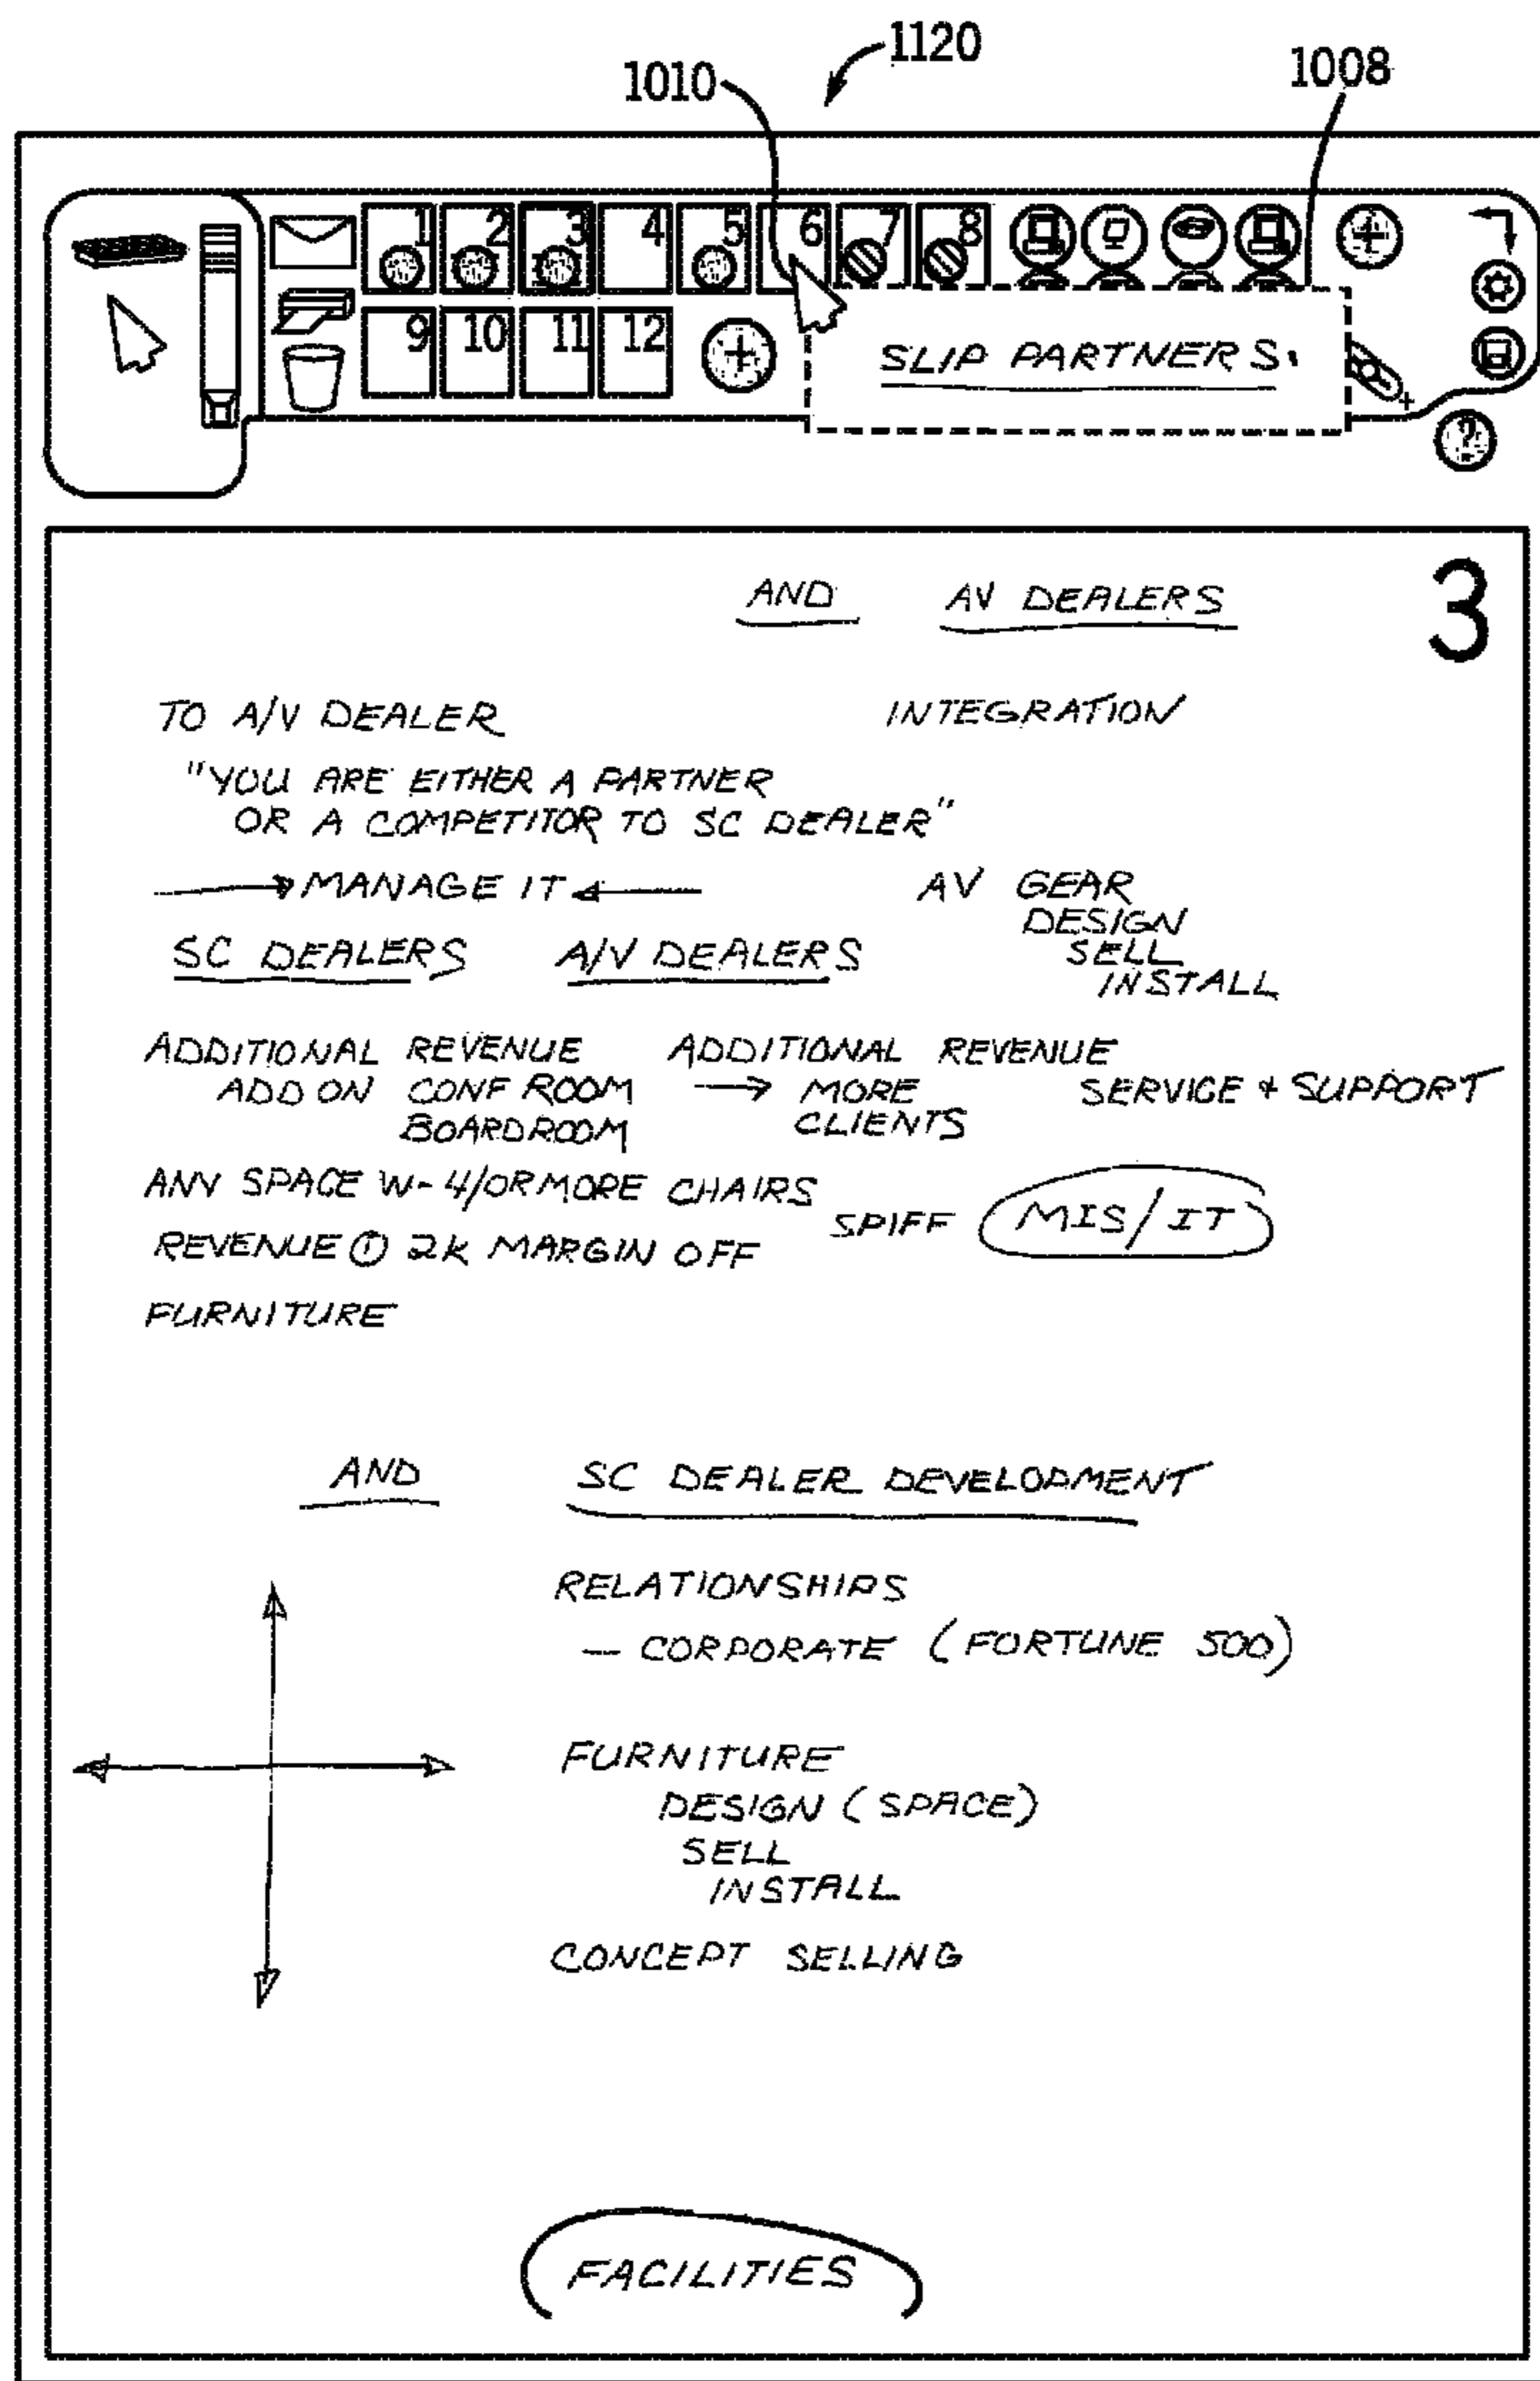 1120
1010
1008
1 2 3 4 5 6 7 8
9 10 11 12
SLIP PARTNERS
?
3
AND AV DEALERS
TO A/V DEALER INTEGRATION
"YOU ARE EITHER A PARTNER
OR A COMPETITOR TO SC DEALER"
MANAGE IT
AV GEAR
DESIGN
SELL
INSTALL
SC DEALERS A/V DEALERS
ADDITIONAL REVENUE ADDITIONAL REVENUE
ADD ON CONF ROOM → MORE SERVICE + SUPPORT
BOARDROOM CLIENTS
ANY SPACE W- 4/OR MORE CHAIRS
SPIFF MIS/IT
REVENUE ① 2K MARGIN OFF
FURNITURE
AND SC DEALER DEVELOPMENT
RELATIONSHIPS
- CORPORATE (FORTUNE 500)
FURNITURE
DESIGN (SPACE)
SELL
INSTALL
CONCEPT SELLING
FACILITIES